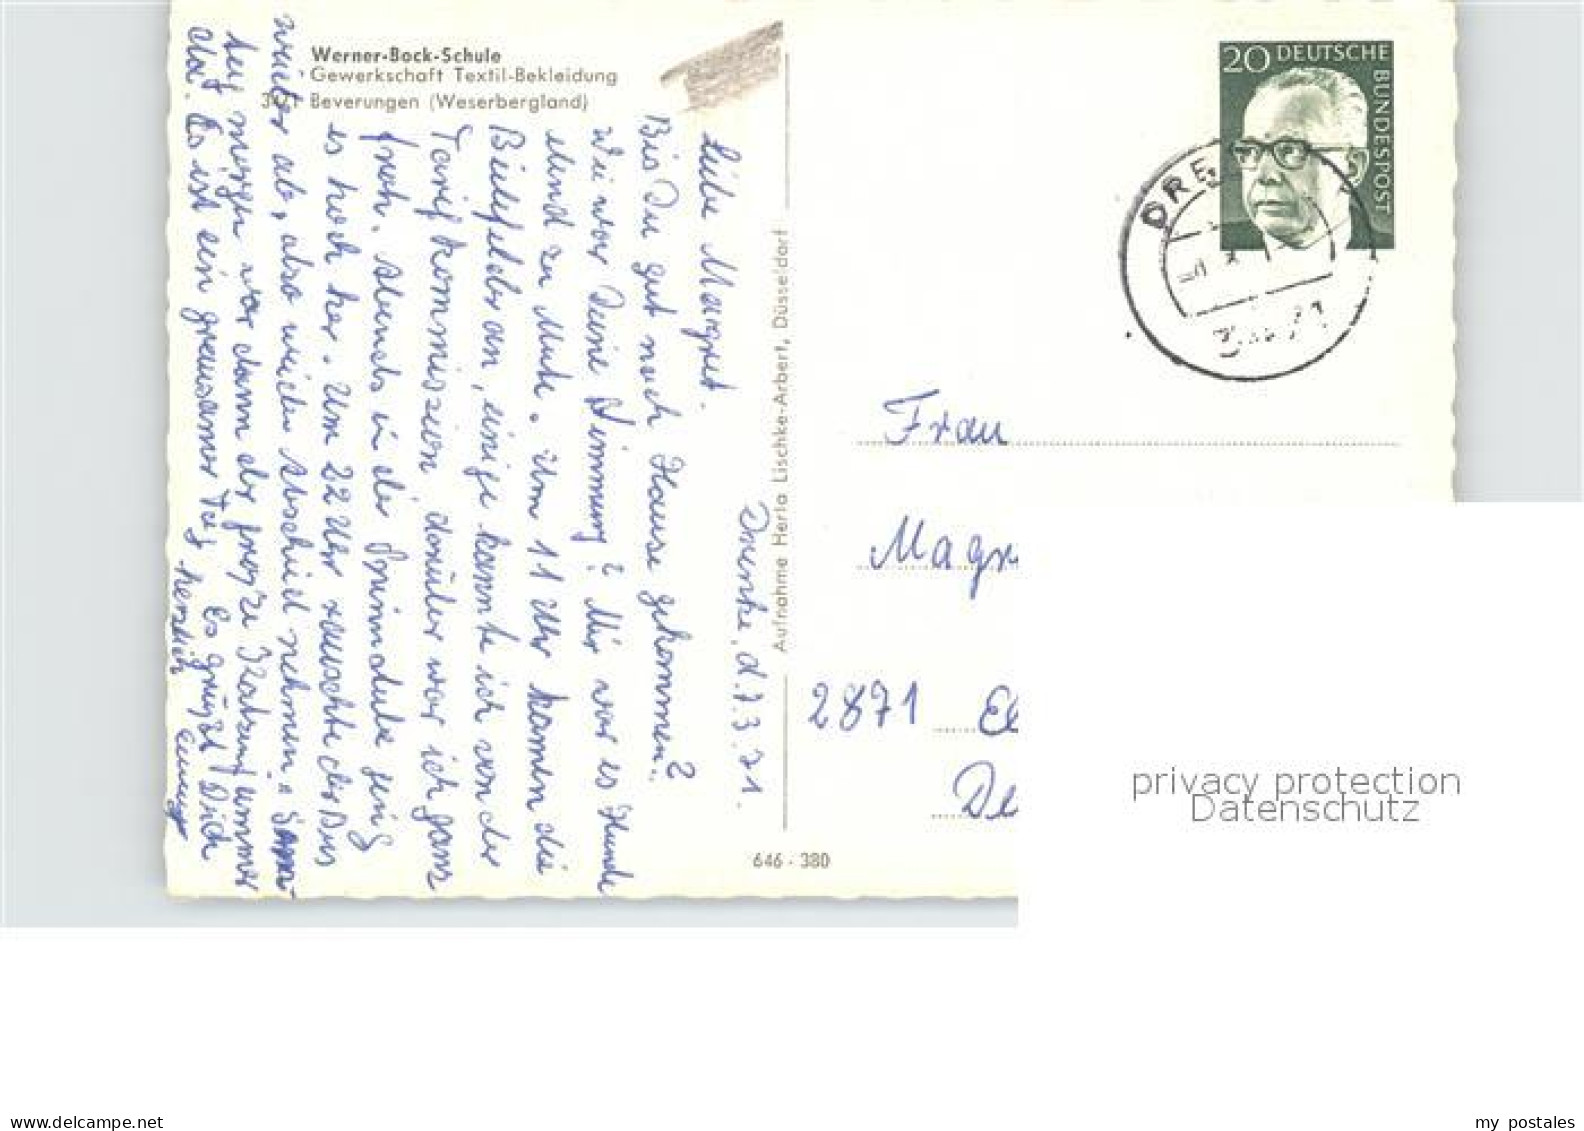 Werner-Bock-Schule
Gewerkschaft Textil-Bekleidung
3471 Beverungen (Weserbergland)
Drenke, d. 7.3.71.
Liebe Margret.
Bis Du gut nach Hause gekommen?
Wie war Deine Stimmung? Mir war es Hunde
elend zu Mute. Um 11 Uhr kamen die
Bielefelder an, einige kannte ich von der
Tarifkommission, darüber war ich ganz
froh. Abends in der Spinnstube ging
es hoch her. Um 22 Uhr rauschte der Bus
wieder ab, also wieder Abschied nehmen.
morgen war dann der große
da. Es ist ein grausamer Tag. Es grüßt Dich
herzlich
Aufnahme Herla Lischke-Arbert, Düsseldorf
646 - 380
20 DEUTSCHE
BUNDESPOST
DRE
Frau
Magr
2871 El
De
privacy protection
Datenschutz
www.delcampe.net
my postales